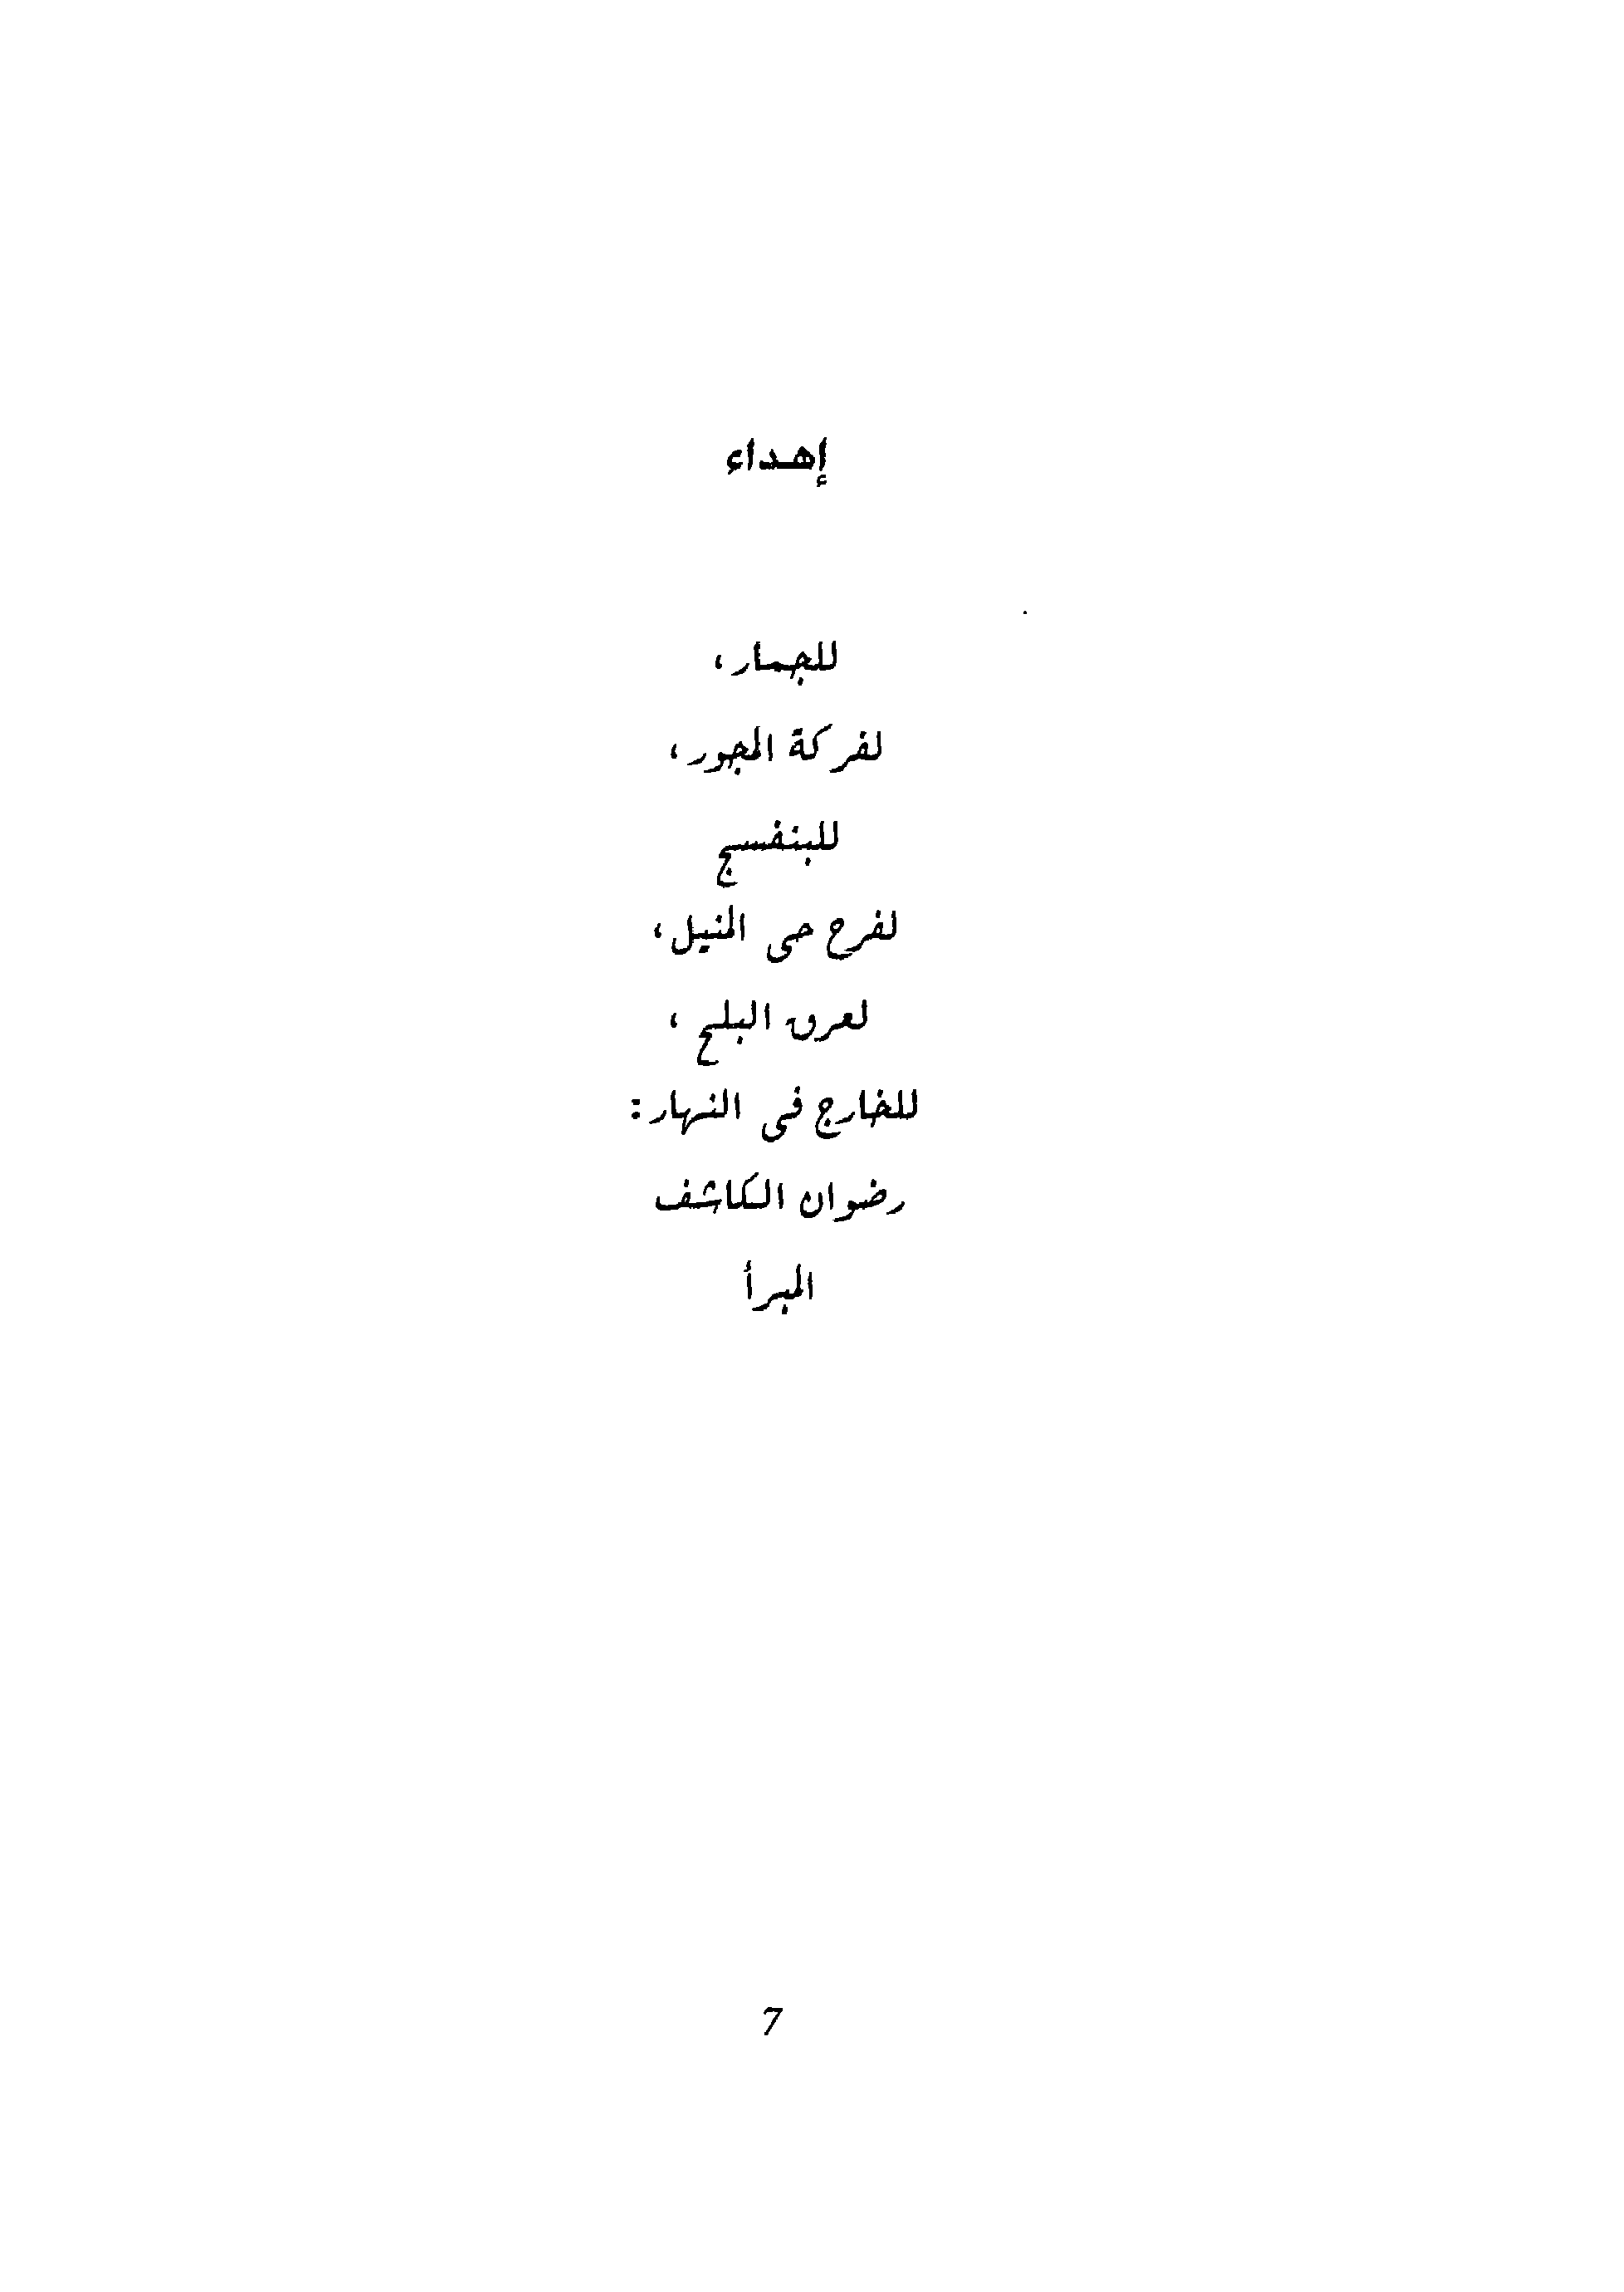 إهداء
للجمار،
لفركة المجور،
للبنفسج
لفرح حى المنيل،
لعرق البلح ،
للخارج فى النهار:
رضوان الكاشف
المبرأ
7